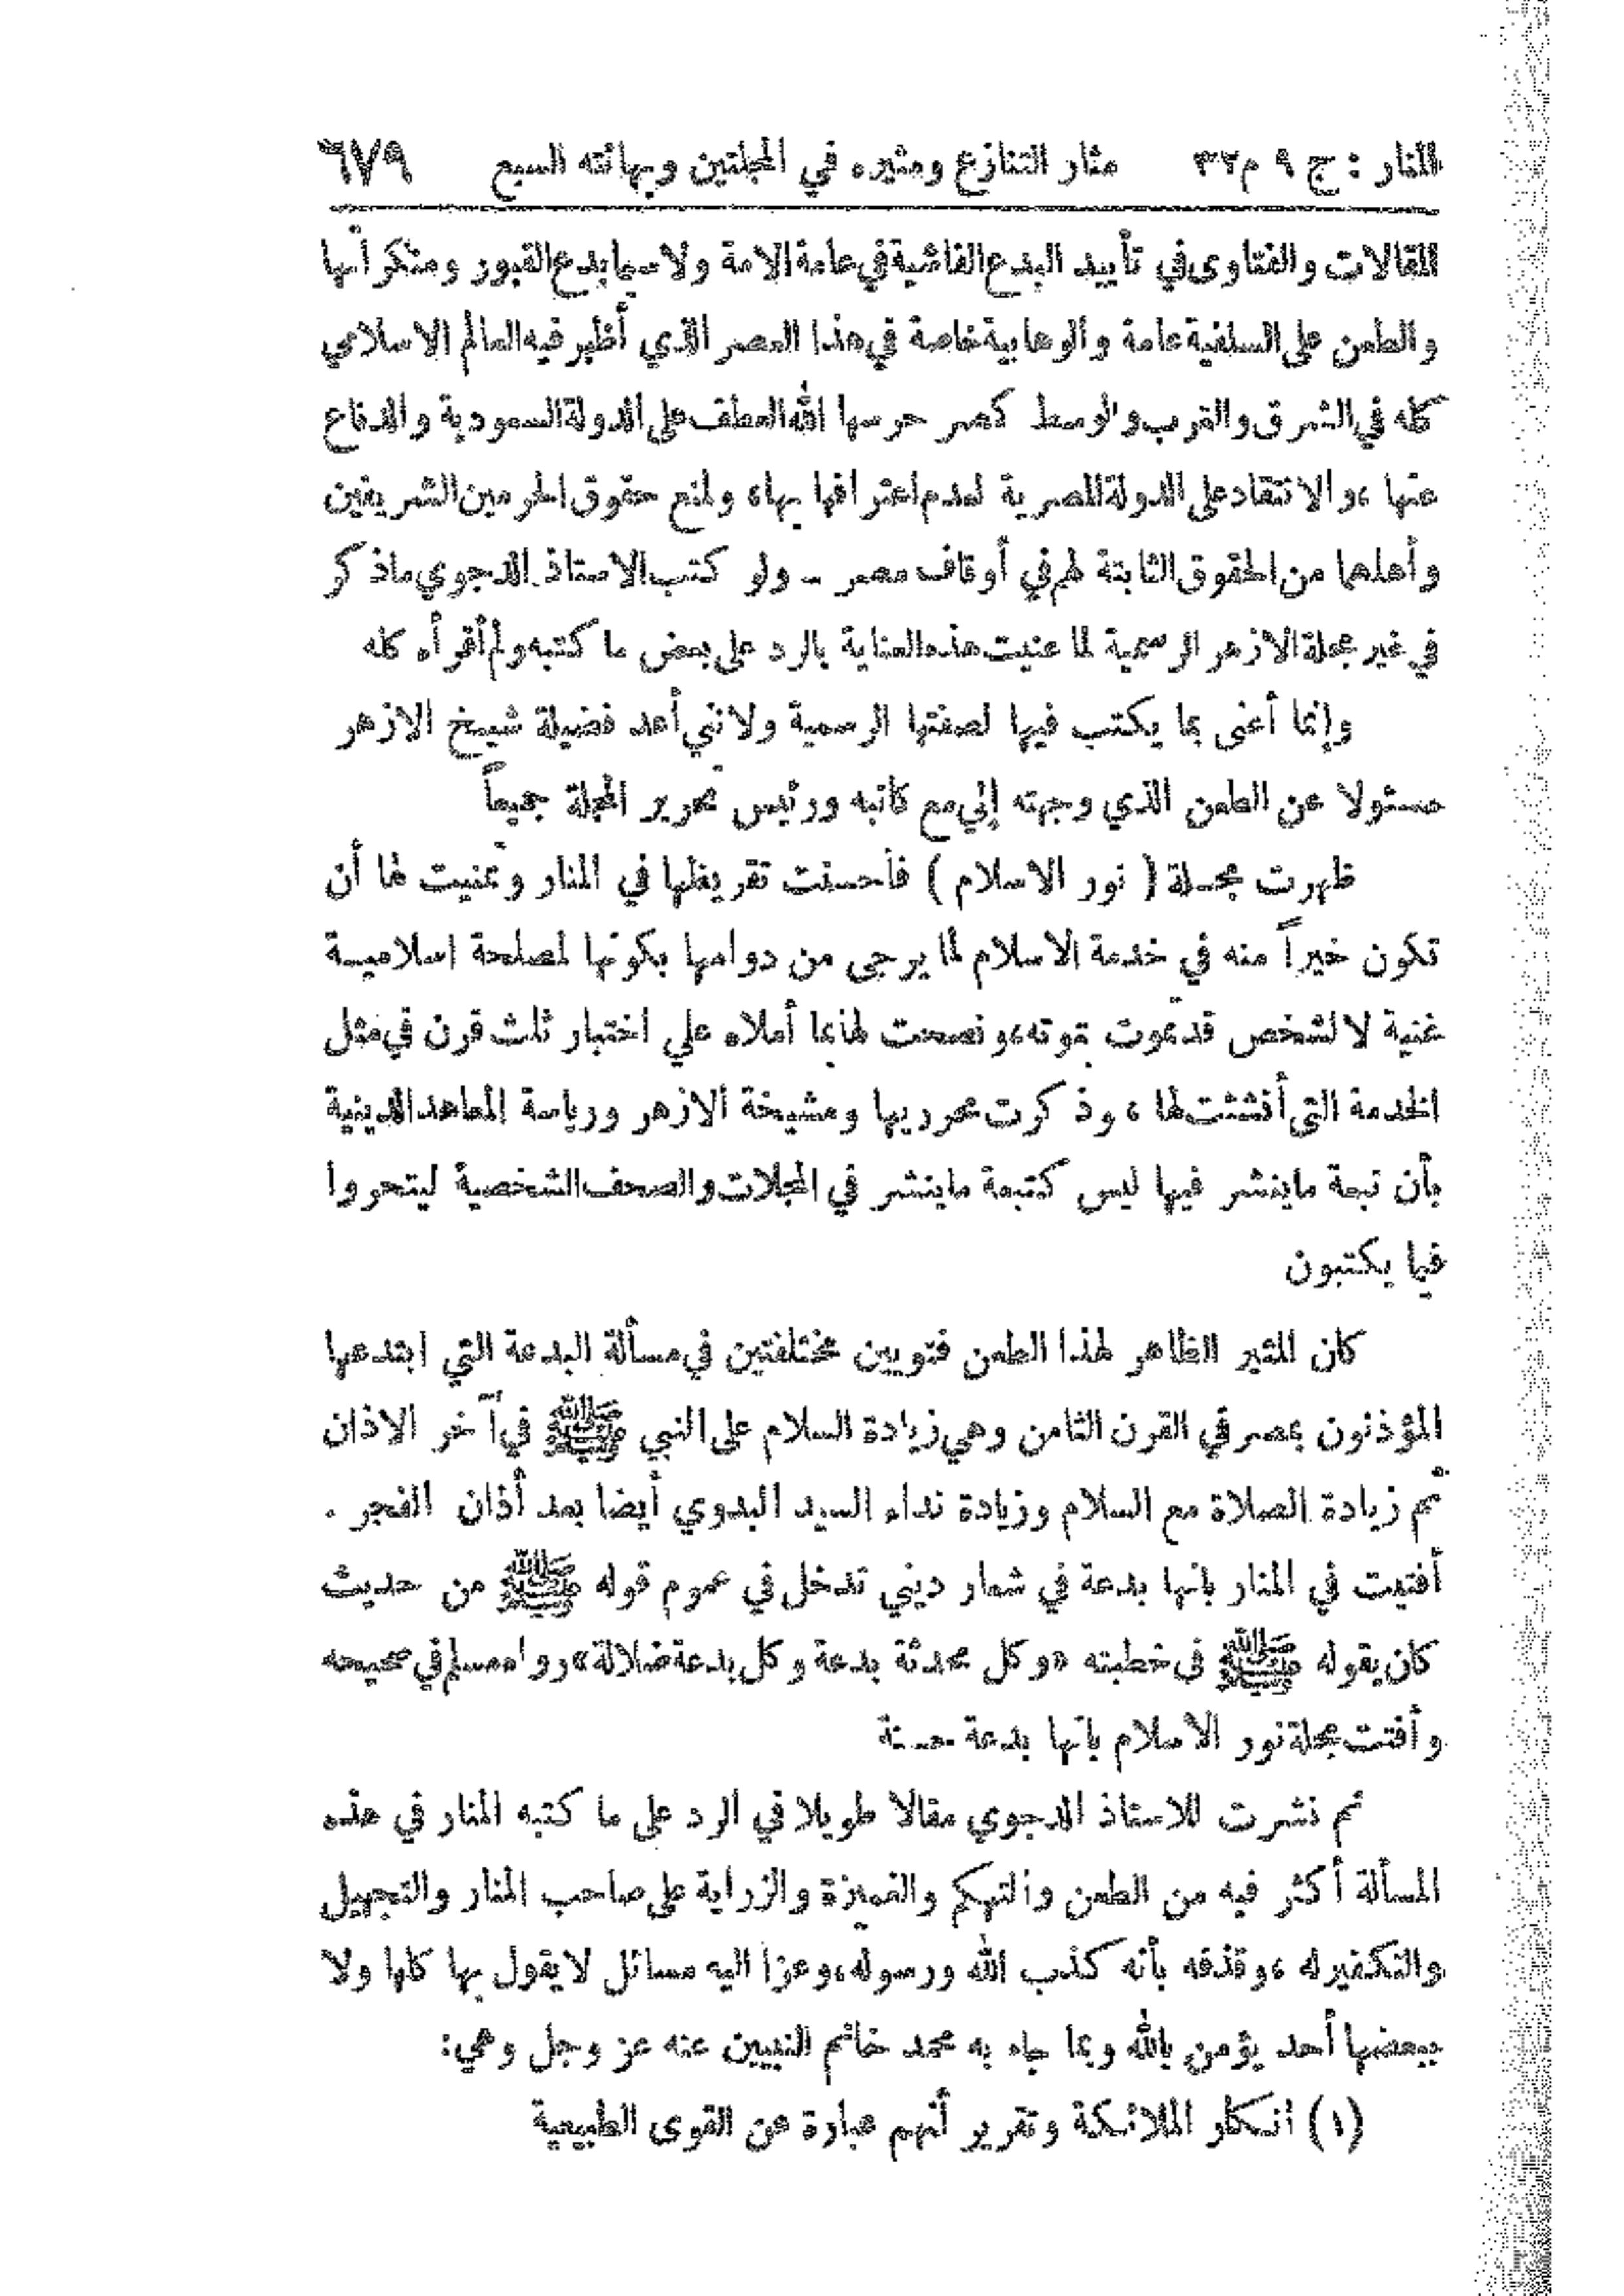 المنار : ج ٩ م ٣٢ مثار التنازع ومثيره في المجلتين وبهائته السبع ٦٧٩
المقالات والفتاوى في تأييد البدع الفاشية في عامة الامة ولا سيما بدع القبور ومنكراتها
والطعن على السلفية عامة والوهابية خاصة في هذا العصر الذي أظهر فيه العالم الاسلامي
كله في الشرق والغرب والوسط كمصر حرسها الله العطف على الدولة السعودية والدفاع
عنها ، والانتقاد على الدولة المصرية لعدم اعترافها بها، ولمنع حقوق الحرمين الشريفين
وأهلهما من الحقوق الثابتة لهم في أوقاف مصر - ولو كتب الاستاذ الدجوي ماذكر
في غير مجلة الازهر الرسمية لما عنيت هذه العناية بالرد على بعض ما كتبه ولم أقرأه كله
وإنما أعنى بما يكتب فيها لصفتها الرسمية ولانني أعد فضيلة شيخ الازهر
مسئولا عن الطعن الذي وجهته إلي مع كاتبه ورئيس تحرير المجلة جميعاً
ظهرت مجلة ( نور الاسلام ) فأحسنت تقريظها في المنار وتمنيت لها أن
تكون خيراً منه في خدمة الاسلام لما يرجى من دوامها بكونها لمصلحة اسلامية
غنية لا لشخص قد تموت بموته، ونصحت لها بما أملاه علي اختبار ثلث قرن في مثل
الخدمة التي أنشئت لها ، وذكرت محرريها ومشيخة الازهر ورياسة المعاهد الدينية
بأن تبعة ماينشر فيها ليس كتبعة ماينشر في المجلات والصحف الشخصية ليتحروا
فيما يكتبون
كان المثير الظاهر لهذا الطعن فتويين مختلفتين في مسألة البدعة التي ابتدعها
المؤذنون بمصر في القرن الثامن وهي زيادة السلام على النبي ﷺ في آخر الاذان
ثم زيادة الصلاة مع السلام وزيادة نداء السيد البدوي أيضا بعد أذان الفجر .
أفتيت في المنار بانها بدعة في شعار ديني تدخل في عموم قوله ﷺ من حديث
كان يقوله ﷺ في خطبته «وكل محدثة بدعة وكل بدعة ضلالة» رواه مسلم في صحيحه
وأفتت مجلة نور الاسلام بانها بدعة حسنة
ثم نشرت للاستاذ الدجوي مقالا طويلا في الرد على ما كتبه المنار في هذه
المسألة أكثر فيه من الطعن والتهكم والغميزة والزراية على صاحب المنار والتجهيل
والتكفير له ، وقذفه بأنه كذب الله ورسوله، وعزا اليه مسائل لا يقول بها كلها ولا
ببعضها أحد يؤمن بالله وبما جاء به محمد خاتم النبيين عنه عز وجل وهي:
(١) انكار الملائكة وتقرير أنهم عبارة عن القوى الطبيعية